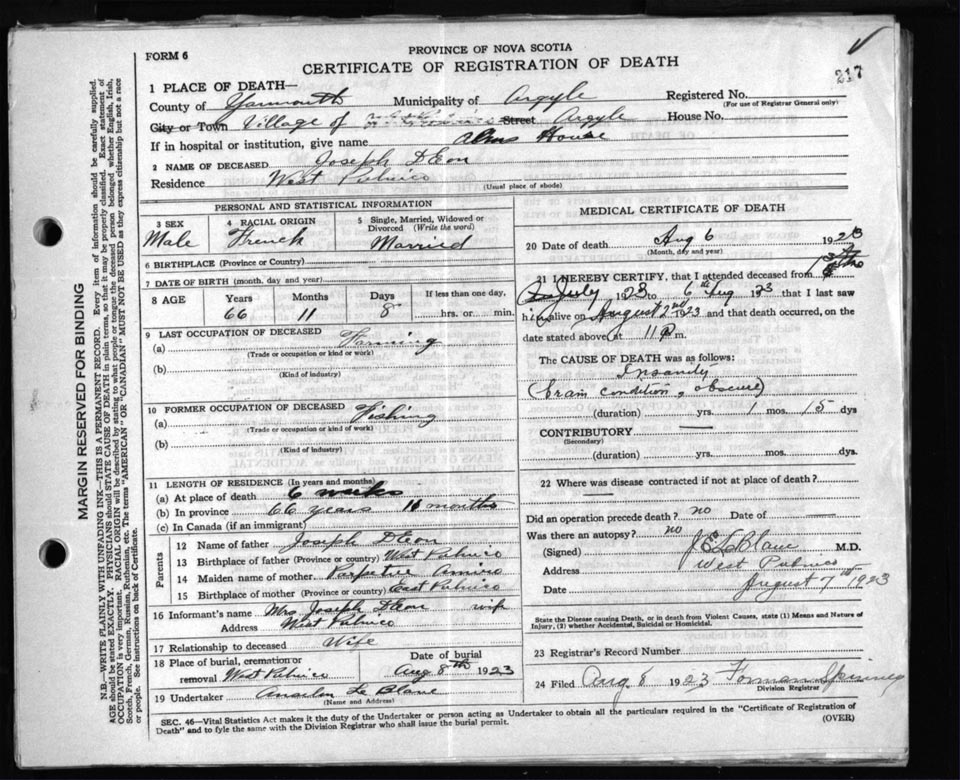 FORM 6
PROVINCE OF NOVA SCOTIA
CERTIFICATE OF REGISTRATION OF DEATH
217
1 PLACE OF DEATH—
County of Yarmouth Municipality of Argyle Registered No.
(For use of Registrar General only)
City or Town Village of Street Argyle House No.
If in hospital or institution, give name Alms House
2 NAME OF DECEASED Joseph D'Eon
Residence West Pubnico
(Usual place of abode)
PERSONAL AND STATISTICAL INFORMATION
3 SEX 4 RACIAL ORIGIN 5 Single, Married, Widowed or Divorced (Write the word)
Male French Married
6 BIRTHPLACE (Province or Country)
7 DATE OF BIRTH (month, day and year)
8 AGE Years Months Days If less than one day,
66 11 8 hrs. or min.
9 LAST OCCUPATION OF DECEASED
(a) Farming
(Trade or occupation or kind or work)
(b)
(Kind of industry)
10 FORMER OCCUPATION OF DECEASED
(a) Fishing
(Trade or occupation or kind of work)
(b)
(Kind of industry)
11 LENGTH OF RESIDENCE (In years and months)
(a) At place of death 6 weeks
(b) In province 66 years 11 months
(c) In Canada (if an immigrant)
Parents
12 Name of father Joseph D'Eon
13 Birthplace of father (Province or country) West Pubnico
14 Maiden name of mother Amiro
15 Birthplace of mother (Province or country) East Pubnico
16 Informant's name Mrs Joseph D'Eon wife
Address West Pubnico
17 Relationship to deceased Wife
18 Place of burial, cremation or removal West Pubnico Date of burial Aug 8th 1923
19 Undertaker Anselm Le Blanc
(Name and Address)
MEDICAL CERTIFICATE OF DEATH
20 Date of death Aug 6 1923
(Month, day and year)
21 I HEREBY CERTIFY, that I attended deceased from
July 1923 to 6th Aug 1923 that I last saw
him alive on August 2nd 1923 and that death occurred, on
date stated above at 11 P m.
The CAUSE OF DEATH was as follows:
Insanity
(brain condition, obscure)
(duration) yrs. 1 mos. 15 dys
CONTRIBUTORY —
(Secondary)
(duration) yrs. mos. dys
22 Where was disease contracted if not at place of death?
—
Did an operation precede death? no Date of —
Was there an autopsy? no
(Signed) J E LeBlanc M.D.
Address West Pubnico
Date August 7th 1923
State the Disease causing Death, or in death from Violent Causes, state (1) Means and Nature of Injury, (2) whether Accidental, Suicidal or Homicidal.
23 Registrar's Record Number
24 Filed Aug 8 1923 Forman Spinney
Division Registrar
SEC. 46—Vital Statistics Act makes it the duty of the Undertaker or person acting as Undertaker to obtain all the particulars required in the "Certificate of Registration of
Death" and to fyle the same with the Division Registrar who shall issue the burial permit. (OVER)
MARGIN RESERVED FOR BINDING
N.B.—WRITE PLAINLY WITH UNFADING INK—THIS IS A PERMANENT RECORD. Every item of information should be carefully supplied.
AGE should be stated EXACTLY. PHYSICIANS should STATE CAUSE OF DEATH in plain terms, so that it may be properly classified. Exact statement of
OCCUPATION is very important. RACIAL ORIGIN will be described by stating to what people or tongue the deceased person belonged whether English, Irish,
Scotch, French, German, Russian, Ruthenian, etc. The terms "AMERICAN" or "CANADIAN" MUST NOT BE USED as they express citizenship but not a race
or people. See instructions on back of Certificate.